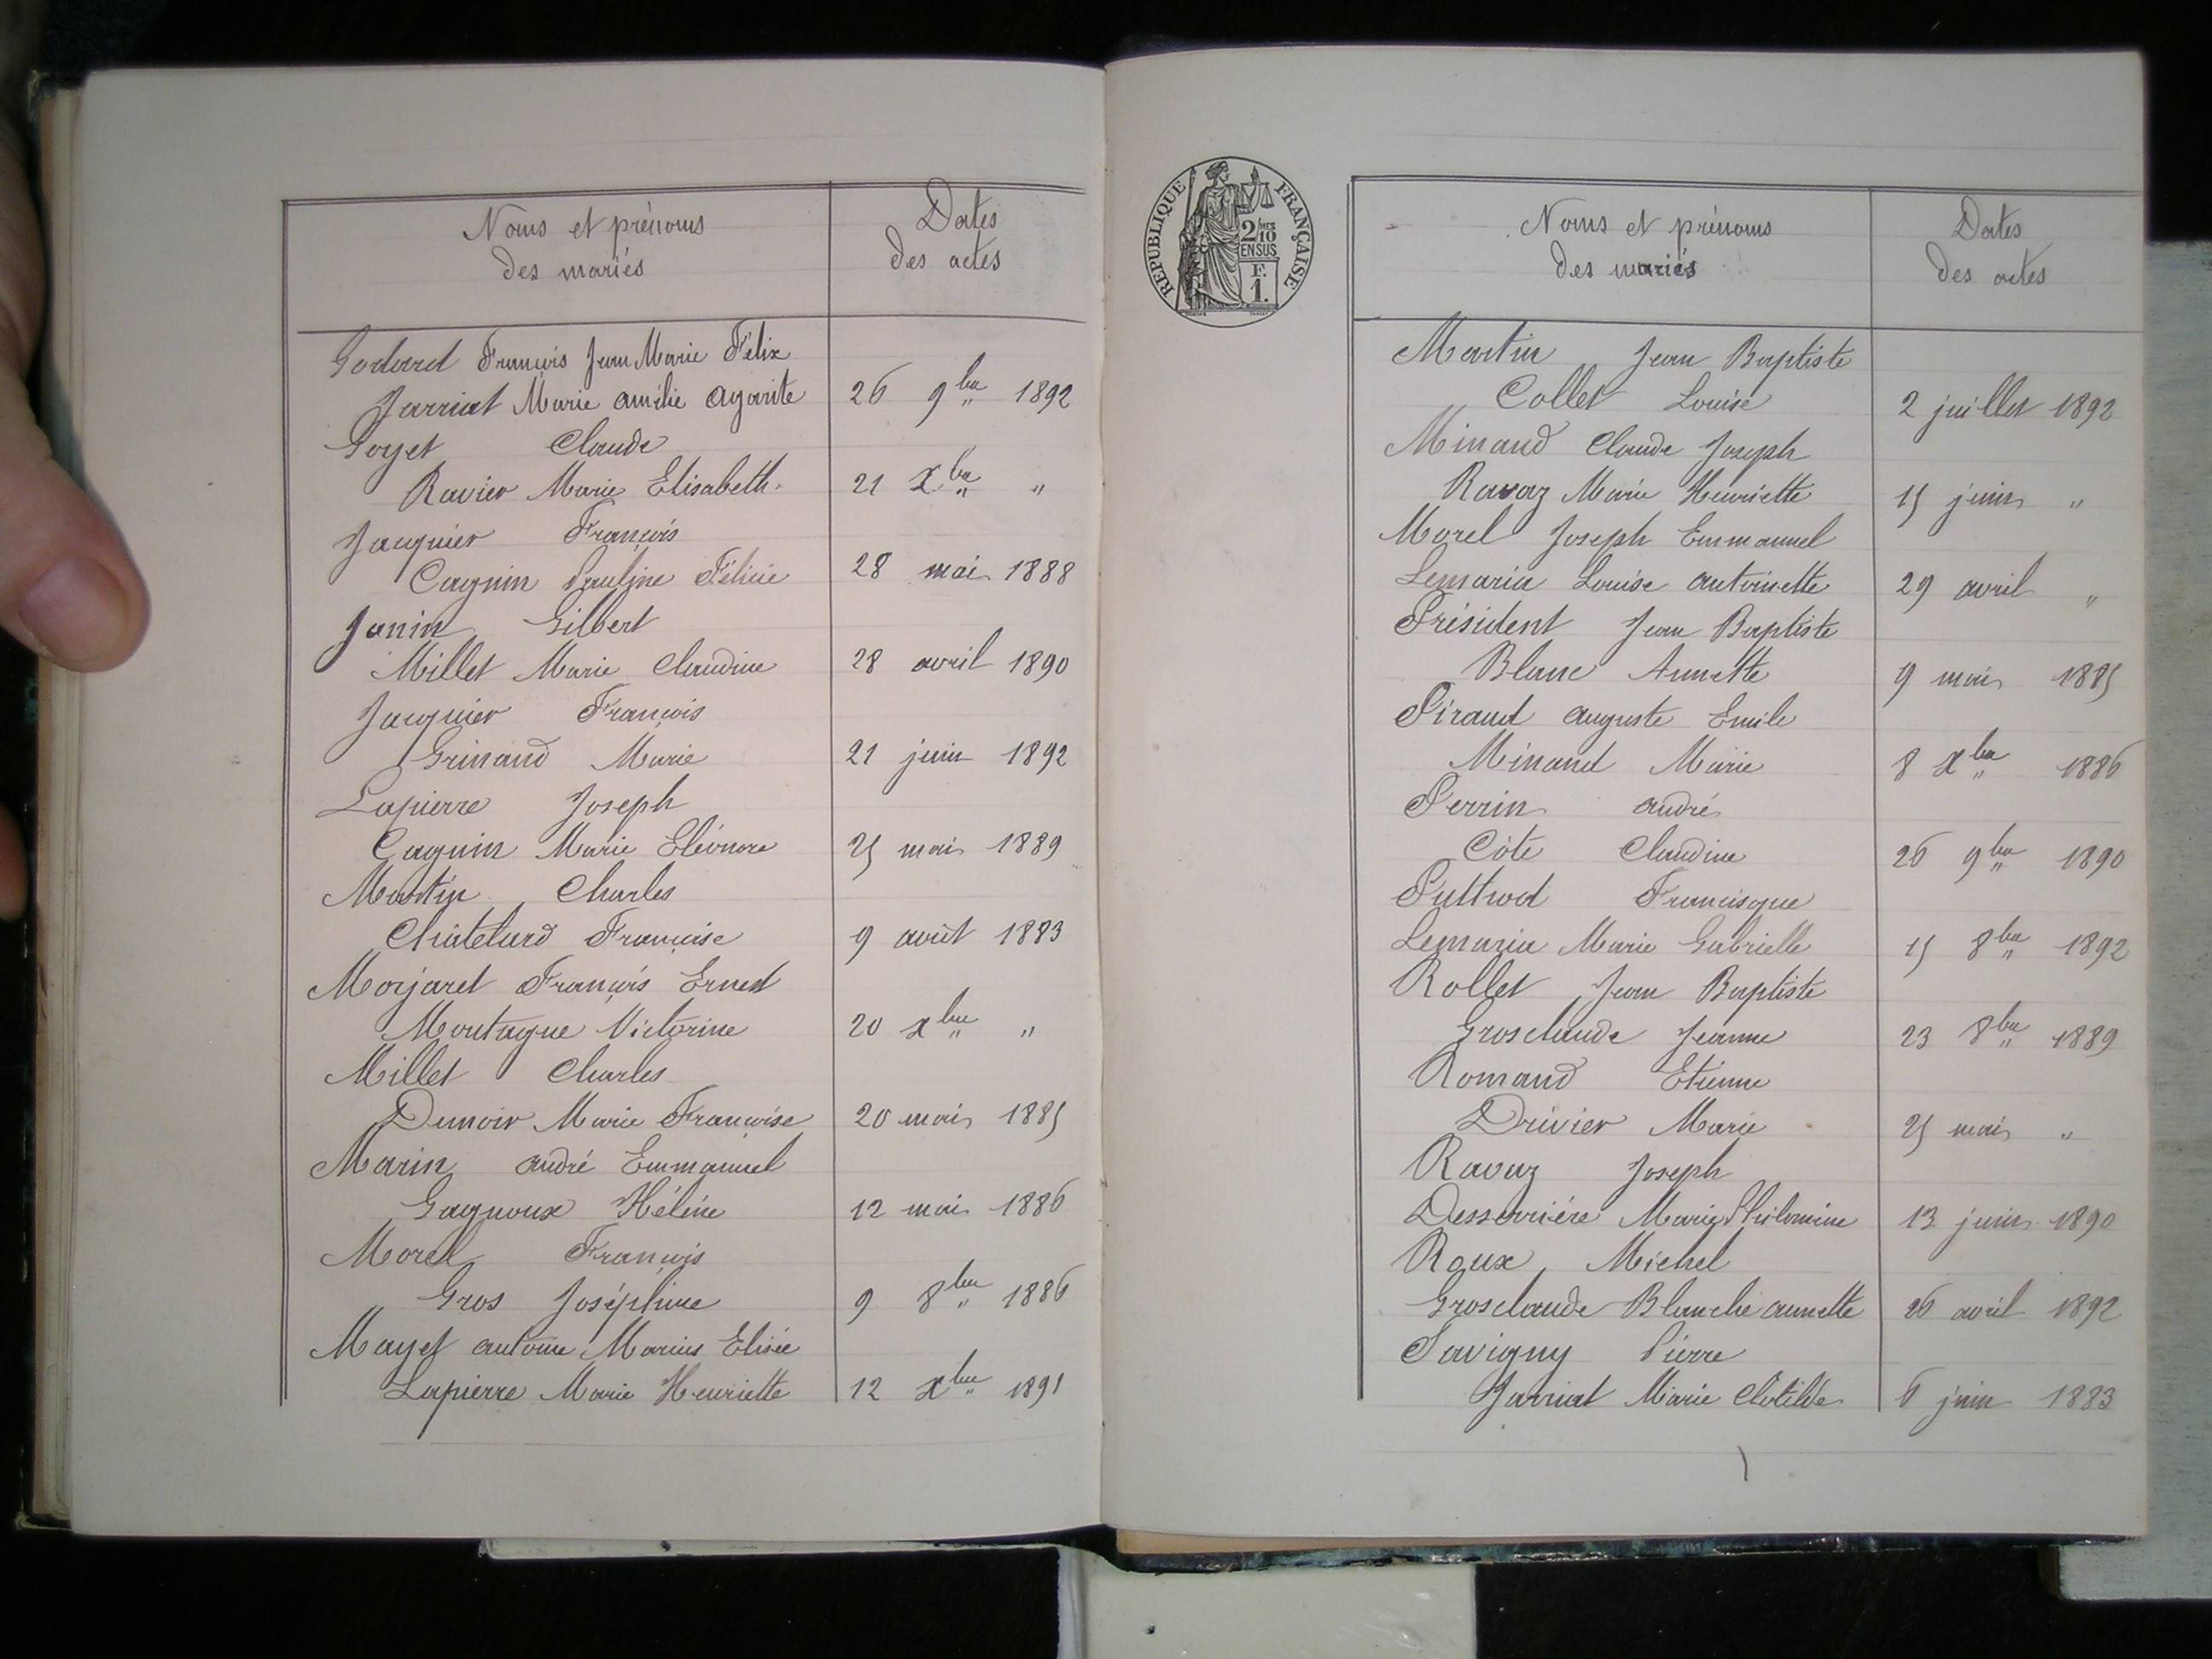 Noms et prénoms
des mariés
Dates
des actes
Godard François Jean Marie Félix
Jarriat Marie amélie agarite 26 9bre 1892
Goyet Claude
Ravier Marie Elisabeth. 21 Xbre "
Jacquier François
Cagnin Pauline Félicie 28 mai 1888
Janin Gilbert
Millet Marie Claudine 28 avril 1890
Jacquier François
Grinand Marie 21 juin 1892
Lapierre Joseph
Cagnin Marie Eléonore 25 mai 1889
Martin Charles
Châtelard Françoise 9 août 1883
Morjaret François Ernest
Montagne Victorine 20 xbre "
Millet Charles
Dunoir Marie Françoise 20 mai 1885
Marin andré Emmanuel
Gagnoux Hélène 12 mai 1886
Morel François
Gros Joséphine 9 8bre 1886
Mayet antoine Marius Elisée
Lapierre Marie Henriette 12 xbre 1891
RÉPUBLIQUE FRANÇAISE
2 10es
EN SUS
F.
1.
Noms et prénoms
des mariés
Dates
des actes
Martin Jean Baptiste
Collet Louise 2 juillet 1892
Minand Claude Joseph
Ravaz Marie Henriette 15 juin "
Morel Joseph Emmanuel
Lemaria Louise antoinette 29 avril "
Président Jean Baptiste
Blanc Annette 9 mai 1885
Piraud auguste Emile
Minand Marie 8 xbre 1886
Perrin andré
Côte Claudine 26 9bre 1890
Puttrod Francisque
Lemaria Marie Gabrielle 15 8bre 1892
Rollet Jean Baptiste
Grosclaude Jeanne 23 8bre 1889
Romand Etienne
Drivier Marie 25 mai "
Ravaz Joseph
Desserrière Marie Philomène 13 juin 1890
Roux Michel
Grosclaude Blanche annette 26 avril 1892
Savigny Pierre
Jarriat Marie Clotilde 6 juin 1883